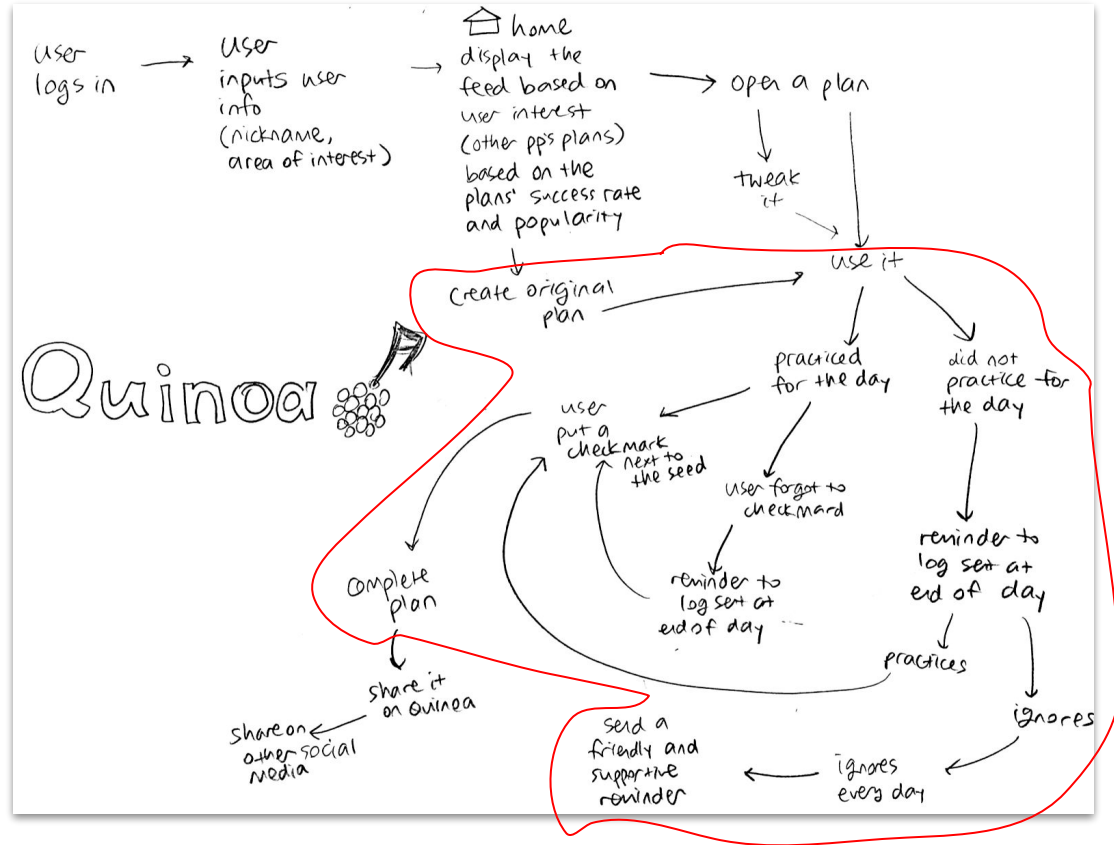 user
logs in
user
inputs user
info
(nickname,
area of interest)
home
display the
feed based on
user interest
(other pp's plans)
based on the
plans' success rate
and popularity
open a plan
tweak
it
use it
create original
plan
Quinoa
practiced
for the day
did not
practice for
the day
user
put a
checkmark
next to
the seed
user forgot to
checkmard
reminder to
log set at
end of day
reminder to
log set at
end of day
complete
plan
practices
share it
on Quinoa
share on
other social
media
ignores
ignores
every day
send a
friendly and
supportive
reminder